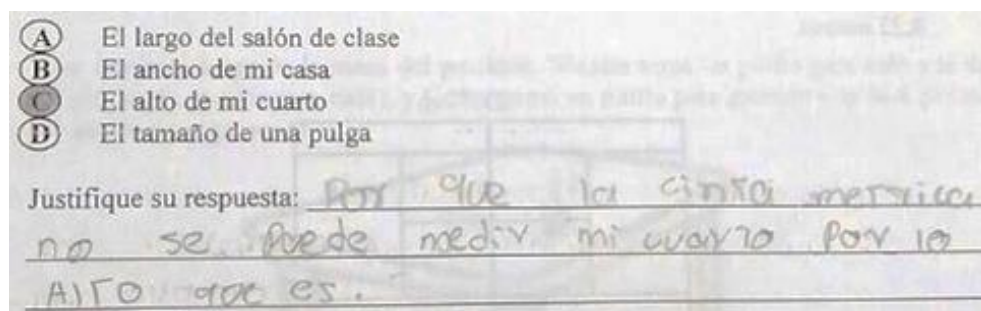 A El largo del salón de clase
B El ancho de mi casa
C El alto de mi cuarto
D El tamaño de una pulga
Justifique su respuesta: Por que la cinta metrica
no se puede medir mi cuarto por lo
Alto que es.